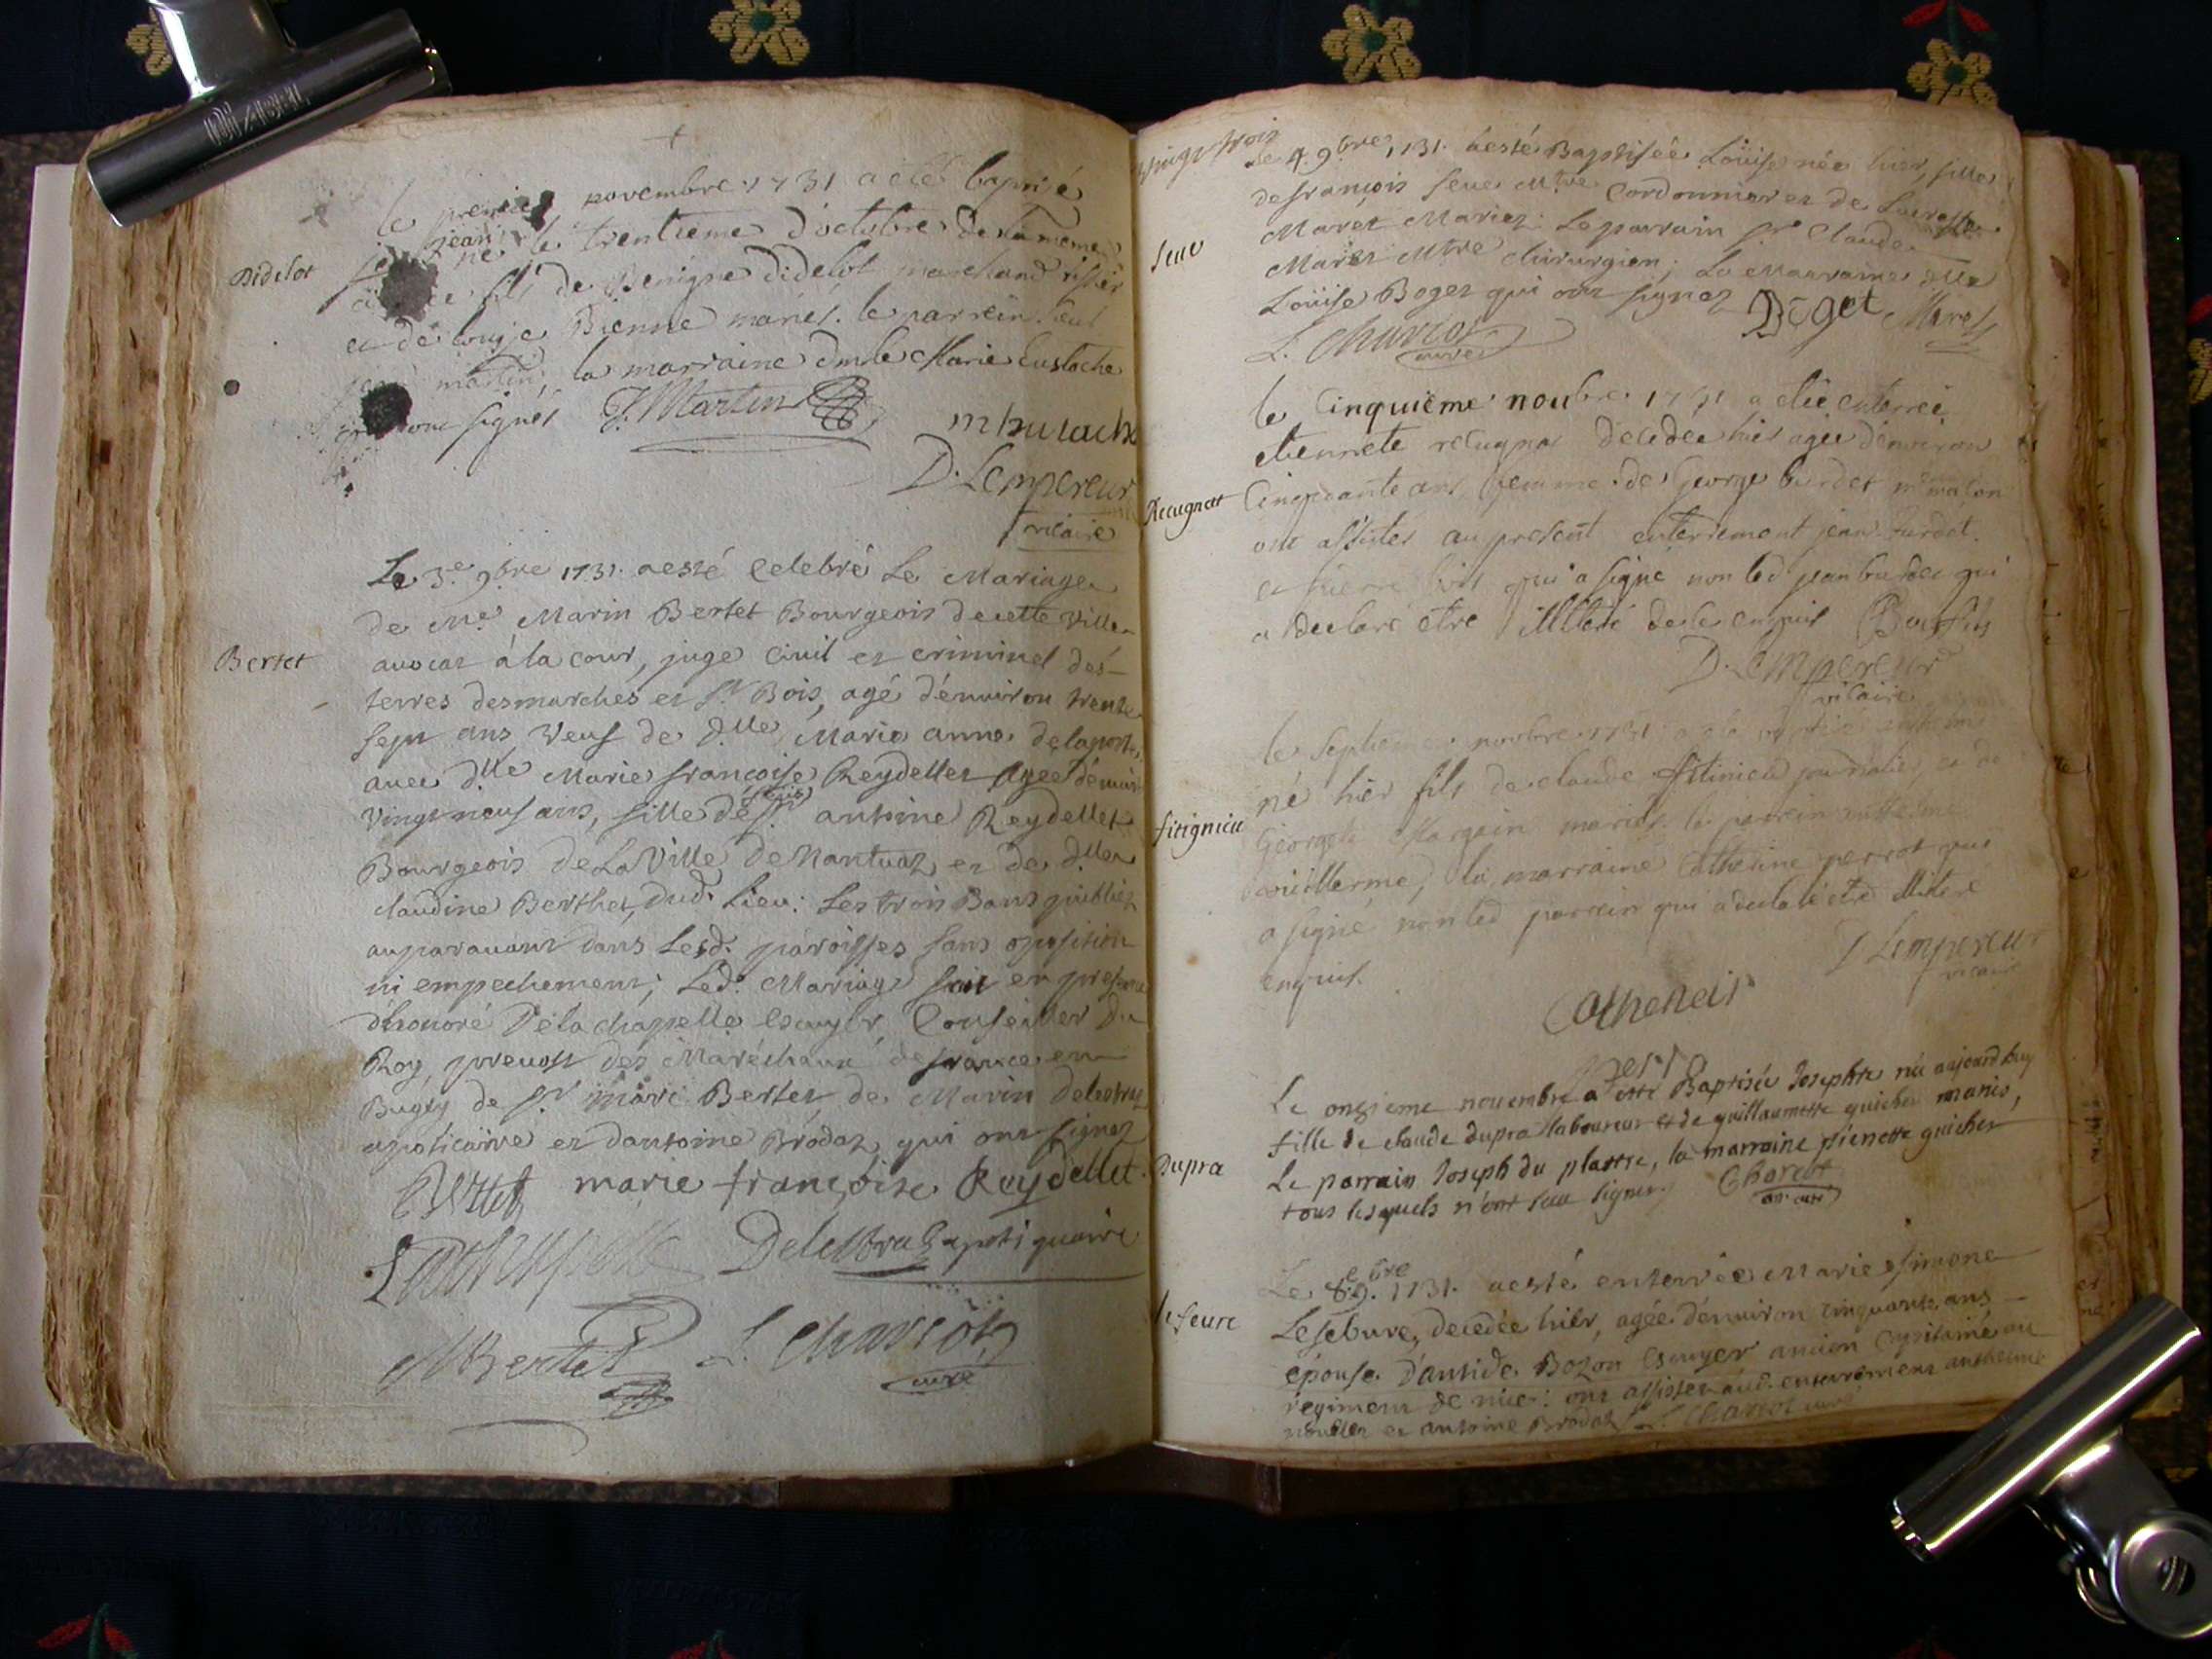 DIZABEL
le premier novembre 1731 a été baptisé
jean né le trentieme d'octobre de la meme
Didelot
fils de Benigne didelot marchand
et de Bienne mariés. le parrein
martin, la marraine dmle Marie Eustache
ont signés J. Martin
D. Lempereur
vicaire
Le 3e. 9bre 1731. a esté Celebré Le Mariage
de Me. Marin Bertet Bourgeois de cette Ville
Bertet
avocat à la cour, juge Civil et criminel des
terres des marches et St. Bois, agé d'environ trente
sept ans, Veuf de dlle Marie anne delaporte,
avec dlle Marie françoise Reydellet agée d'environ
vingt neuf ans, fille de antoine Reydellet
Bourgeois de La Ville de Nantuaz et de dlle
claudine Berthet, dud. Lieu: Les trois Bans publiez
auparavant dans Lesd. paroisses sans oposition
ni empechement; Led. Mariage fait en presence
d'honoré De la chappelle Escuyer, Conseiller Du
Roy, prevost des Maréchaux de france en
Bugey de Sr. marc Bertet de Marin Delestraz
apoticaire et d'antoine Brodaz qui ont signez
Bertet marie françoise Reydellet
Lachapelle Delestraz apotiquaire
M Bertet L. Charcot
curé
Vingt trois
Le 4. 9bre 1731. a esté Baptisée Loüise née hier, fille
de françois seue Mtre Cordonnier et de
Maret Mariez: Le parrain Sr. Claude
Seue
Maret Mtre chirurgien; La Marraine dlle
Loüise Boget qui ont signez Boget Maret
L. Charcot
curé
le Cinquiême noubre 1731 a été enterrée
etiennete recugnat decedee hier agee d'environ
Recugnat
Cinquante ans femme de George burdet me maçon
ont assistes au present enterrement jean burdet
et pierre qui a signé non led jean burdet qui
a declaré etre illiteré de ce enquis
D. Lempereur
vicaire
le Septieme novbre 1731
né hier fils de claude fitinieu journalier, et de
fitignieu
Georgete Margain mariés. le parrein
vuillerme, la marraine Catherine perrot qui
a signé non led parrein qui a declaré etre illiteré
enquis.
D Lempereur
vicaire
Le onzieme novembre a esté Baptisée Josephte née aujourdhuy
fille de claude dupra laboureur et de guillaumette guichet mariés,
Dupra
Le parrain Joseph du plastre, la marraine pienette guichet
tous lesquels n'ont sceu signer. Charcot
Le 8e. 9bre 1731. a esté enterrée Marie Simone
lefeure
Lefebure, decedée hier, agée d'environ cinquante ans
épouse d'antide Bozon Escuyer ancien Capitaine au
régiment de nice: ont assistez aud. enterrement anthelme
et antoine Brodaz L. Charcot curé